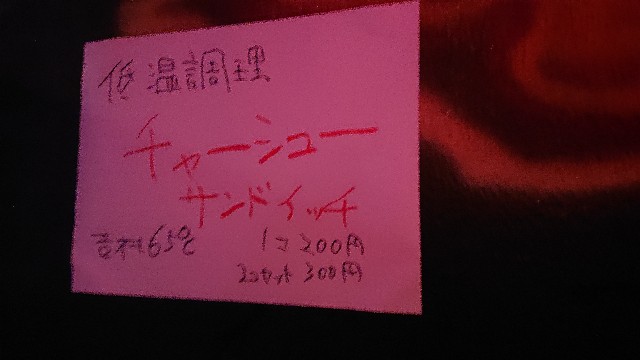 低温調理
チャーシュー
サンドイッチ
65℃
1コ 200円
2コセット 300円